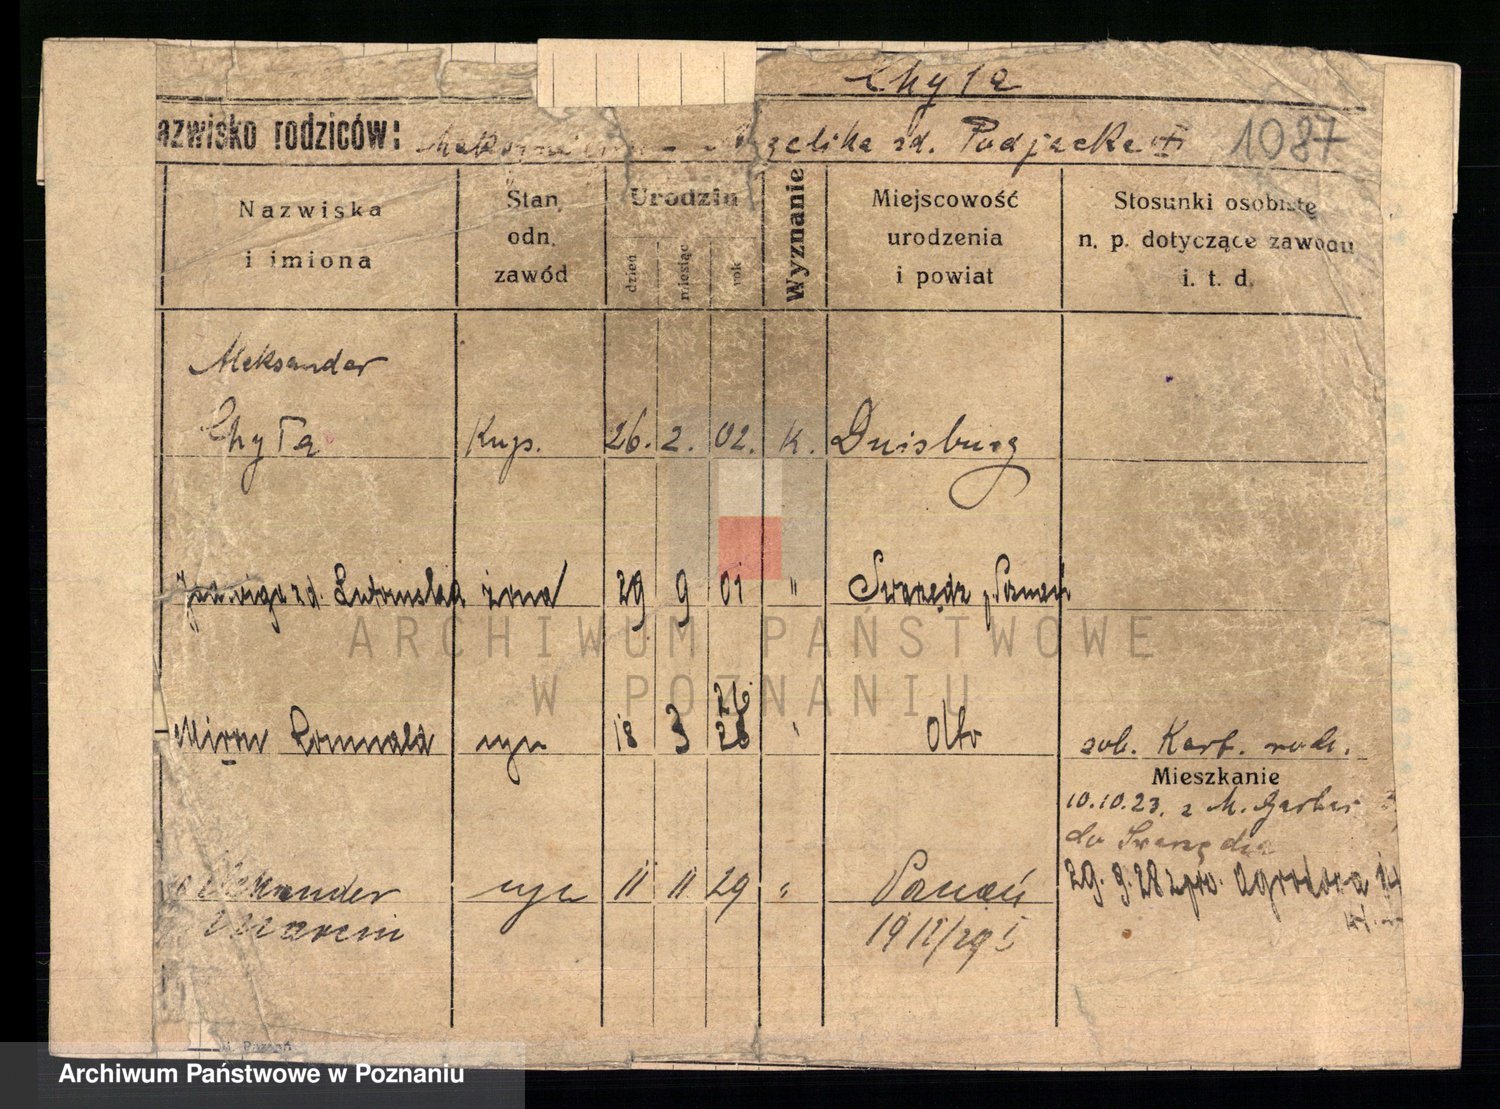 Chyła
azwisko rodziców: Angelika zd. Podjacka 1087
Nazwiska
i imiona
Stan,
odn.
zawód
Urodzin
dzień
miesiąc
rok
Wyznanie
Miejscowość
urodzenia
i powiat
Stosunki osobiste
n. p. dotyczące zawodu
i. t. d.
Aleksander
Chyła Kup. 26. 2. 02. K. Duisburg
Jadwiga zd. Lutomska żona 29 9 01 " Swarzędz p. Poznań
26
Miron Romuald syn 18 3 28 zob. Kart. rodz.
Mieszkanie
10.10.23. z M. Garbar
do Swarzędza
Aleksander syn 11 11 29 " Poznań 29. 9. 28 Ogrodowa 14
Marcin 19 11/29
Poznań
ARCHIWUM PAŃSTWOWE
W POZNANIU
Archiwum Państwowe w Poznaniu